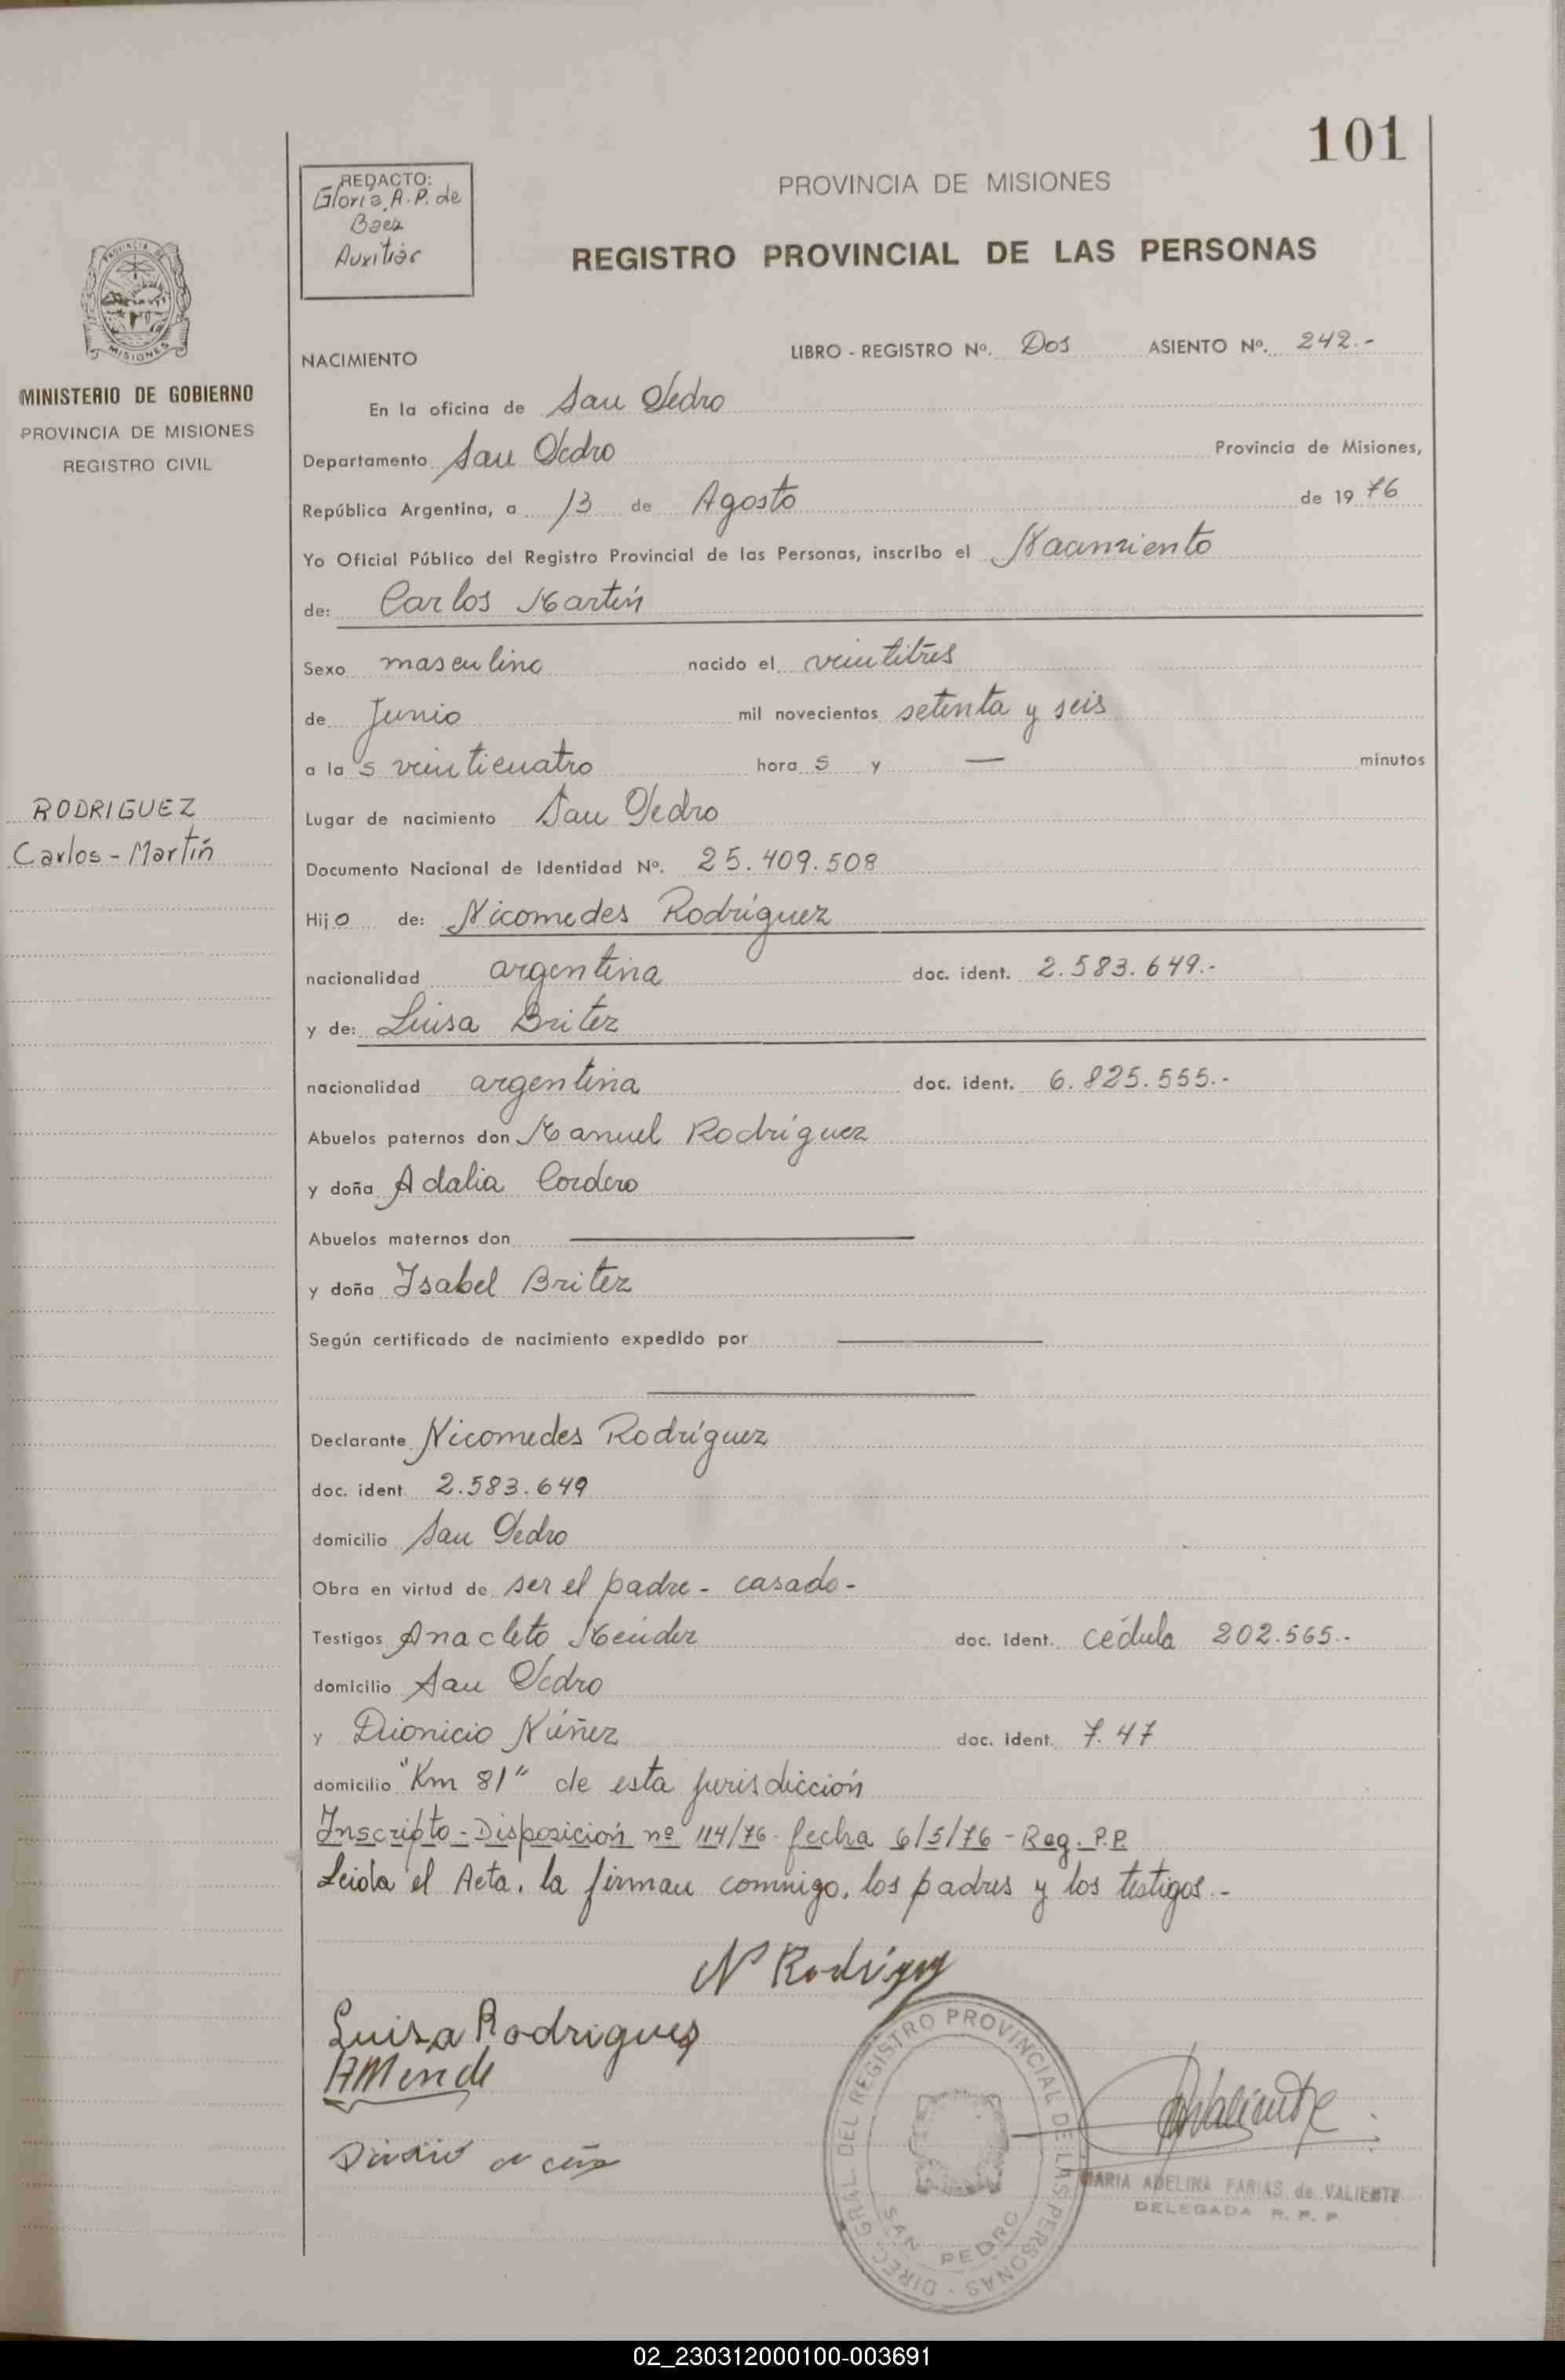 101
REDACTO:
Gloria A. P. de
Baez
Auxiliar
PROVINCIA DE MISIONES
REGISTRO PROVINCIAL DE LAS PERSONAS
PROVINCIA DE
MISIONES
MINISTERIO DE GOBIERNO
PROVINCIA DE MISIONES
REGISTRO CIVIL
RODRIGUEZ
Carlos - Martín
NACIMIENTO LIBRO - REGISTRO Nº. Dos ASIENTO Nº. 242.-
En la oficina de San Pedro
Departamento San Pedro Provincia de Misiones,
República Argentina, a 13 de Agosto de 1976
Yo Oficial Público del Registro Provincial de las Personas, inscribo el Nacimiento
de: Carlos Martín
Sexo masculino nacido el veintitres
de Junio mil novecientos setenta y seis
a las veinticuatro horas y — minutos
Lugar de nacimiento San Pedro
Documento Nacional de Identidad Nº. 25.409.508
Hijo de: Nicomedes Rodríguez
nacionalidad argentina doc. ident. 2.583.649.-
y de: Luisa Britez
nacionalidad argentina doc. ident. 6.825.555.-
Abuelos paternos don Manuel Rodríguez
y doña Adalia Cordero
Abuelos maternos don
y doña Isabel Britez
Según certificado de nacimiento expedido por
Declarante Nicomedes Rodríguez
doc. ident. 2.583.649
domicilio San Pedro
Obra en virtud de ser el padre - casado -
Testigos Anacleto Méndez doc. ident. cédula 202.565.-
domicilio San Pedro
y Dionicio Núñez doc. ident. 7.47
domicilio "Km 81" de esta jurisdicción
Inscripto - Disposición nº 114/76 - fecha 6/5/76 - Reg. P.P.
Leida el Acta, la firman conmigo, los padres y los testigos.-
N Rodrigu
Luisa Rodrigues
AMende
DIREC. GRAL. DEL REGISTRO PROVINCIAL DE LAS PERSONAS -
SAN PEDRO
MARIA ADELINA FARIAS de VALIENTE
DELEGADA R. P. P.
02_230312000100-003691